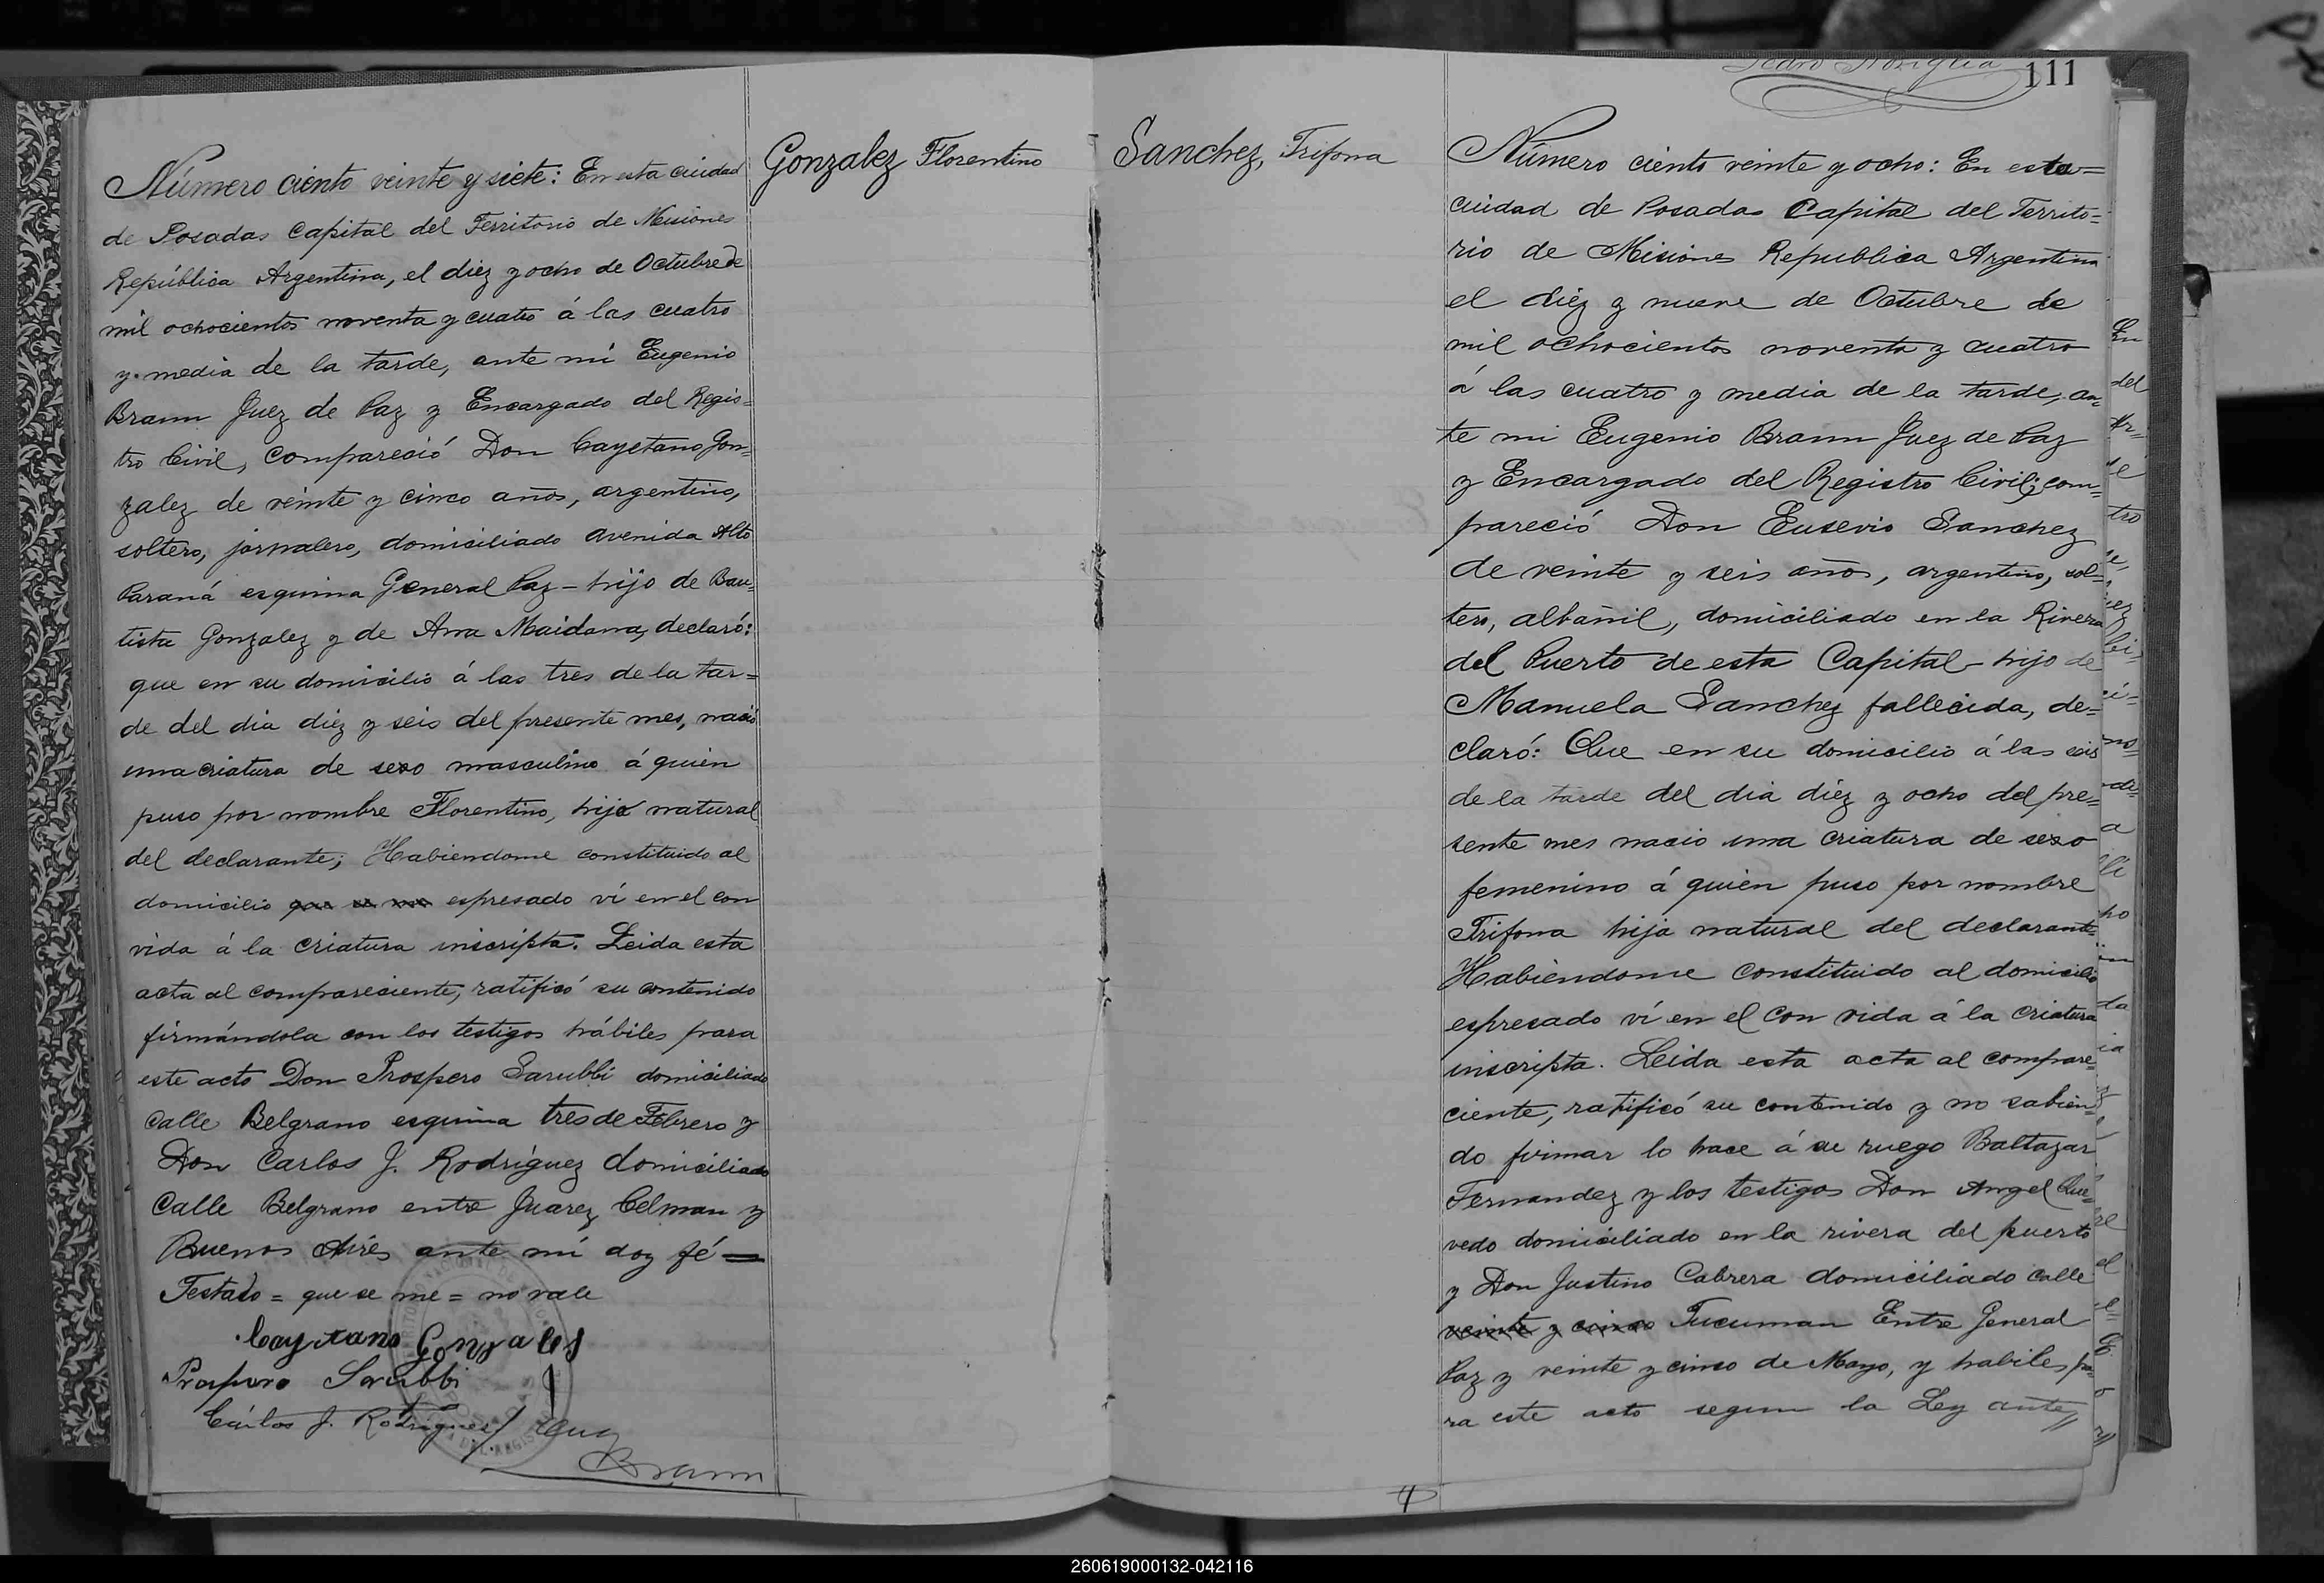 Número ciento veinte y siete: En esta ciudad
de Posadas Capital del Territorio de Misiones
República Argentina, el diez y ocho de Octubre de
mil ochocientos noventa y cuatro á las cuatro
y media de la tarde, ante mí Eugenio
Brann Juez de Paz y Encargado del Regis=
tro Civil, compareció Don Cayetano Gon=
zalez de veinte y cinco años, argentino,
soltero, jornalero, domiciliado Avenida Alto
Paraná esquina General Paz - hijo de Bau=
tista Gonzalez y de Ana Maidana, declaró:
que en su domicilio á las tres de la tar=
de del dia diez y seis del presente mes, nació
una criatura de sexo masculino á quien
puso por nombre Florentino, hijo natural
del declarante; Habiendome constituido al
domicilio que se me espresado ví en el con
vida á la criatura inscripta. Leida esta
acta al compareciente, ratificó su contenido
firmándola con los testigos hábiles para
este acto Don Prospero Sarubbi domiciliado
Calle Belgrano esquina tres de Febrero y
Don Carlos J. Rodríguez domiciliado
Calle Belgrano entre Juarez Celman y
Buenos Aires ante mí doy fé =
Testado = que se me = no vale
Cayetano Gonzales
Prospero Sarubbi
Cárlos J. Rodriguez
Eug
Brann
Gonzalez Florentino
Sanchez, Trifona
Pedro Noziglia
111
Número ciento veinte y ocho: En esta=
ciudad de Posadas Capital del Territo=
rio de Misiones Republica Argentina
el diez y nueve de Octubre de
mil ochocientos noventa y cuatro
á las cuatro y media de la tarde, an=
te mi Eugenio Brann Juez de Paz
y Encargado del Registro Civil, com=
pareció Don Eusevio Sanchez
de veinte y seis años, argentino, sol=
tero, albañil, domiciliado en la Rivera
del Puerto de esta Capital - hijo de
Manuela Sanchez fallecida, de=
claró: Que en su domicilio á las seis
de la tarde del dia diez y ocho del pre=
sente mes nacio una criatura de sexo
femenino á quien puso por nombre
Trifona hija natural del declarante
Habiéndome constituido al domicilio
espresado ví en el con vida á la criatura
inscripta. Leida esta acta al compare=
ciente, ratificó su contenido y no sabien=
do firmar lo hace á su ruego Baltazar
Fernandez y los testigos Don Angel Que=
vedo domiciliado en la rivera del puerto
y Don Justino Cabrera domiciliado calle
veinte y cinco Tucuman Entre General
Paz y veinte y cinco de Mayo, y habiles pa=
ra este acto segun la Ley ante
260619000132-042116